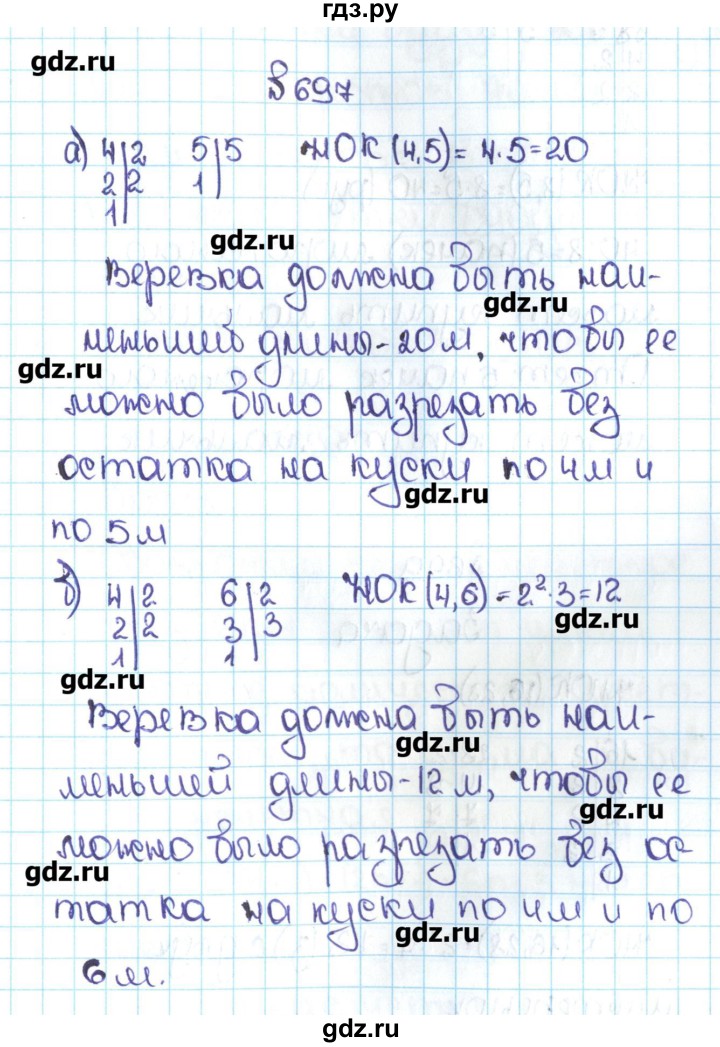 гдз.ру
gdz.ru
№697
а) 4|2 5|5 НОК (4,5)= 4·5=20
2|2 1|
1|
gdz.ru
Веревка должна быть наи-
gdz.ru
меньшей длины-20м, чтобы ее
gdz.ru
можно было разрезать без
остатка на куски по 4м и
gdz.ru
по 5м
б) 4|2 6|2 НОК (4,6)=2²·3=12
2|2 3|3
gdz.ru
1| 1|
gdz.ru
Веревка должна быть наи-
gdz.ru
меньшей длины-12м, чтобы ее
gdz.ru
можно было разрезать без ос
gdz.ru
татка на куски по 4м и по
gdz.ru
6м.
gdz.ru